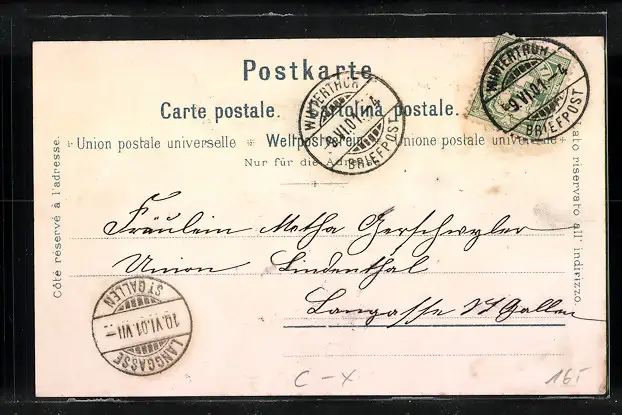 Postkarte.
Carte postale. Cartolina postale.
Union postale universelle Weltpostverein Unione postale universale
Nur für die Adresse.
Côté réservé à l'adresse.
Lato riservato all' indirizzo.
WINTERTHUR
9.VI.01.-4
BRIEFPOST
WINTERTHUR
9.VI.01.-4
BRIEFPOST
Fräulein Metha Gerschwyler
Union Lindenthal
Langasse St Gallen
ST. GALLEN
10.VI.01.VII-
LANGGASSE
C - X
16.-